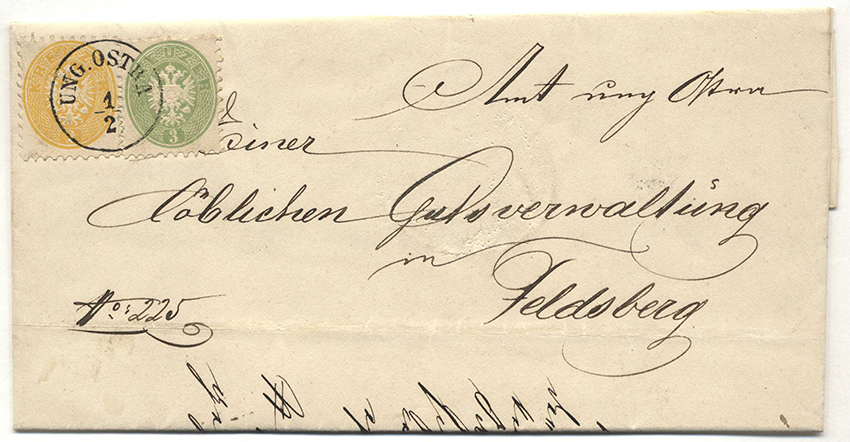 UNG. OSTRA
1
2
KREUZER
3
Amt ung Ostra
Einer
löblichen Gutsverwaltung
in
Feldsberg
No: 225